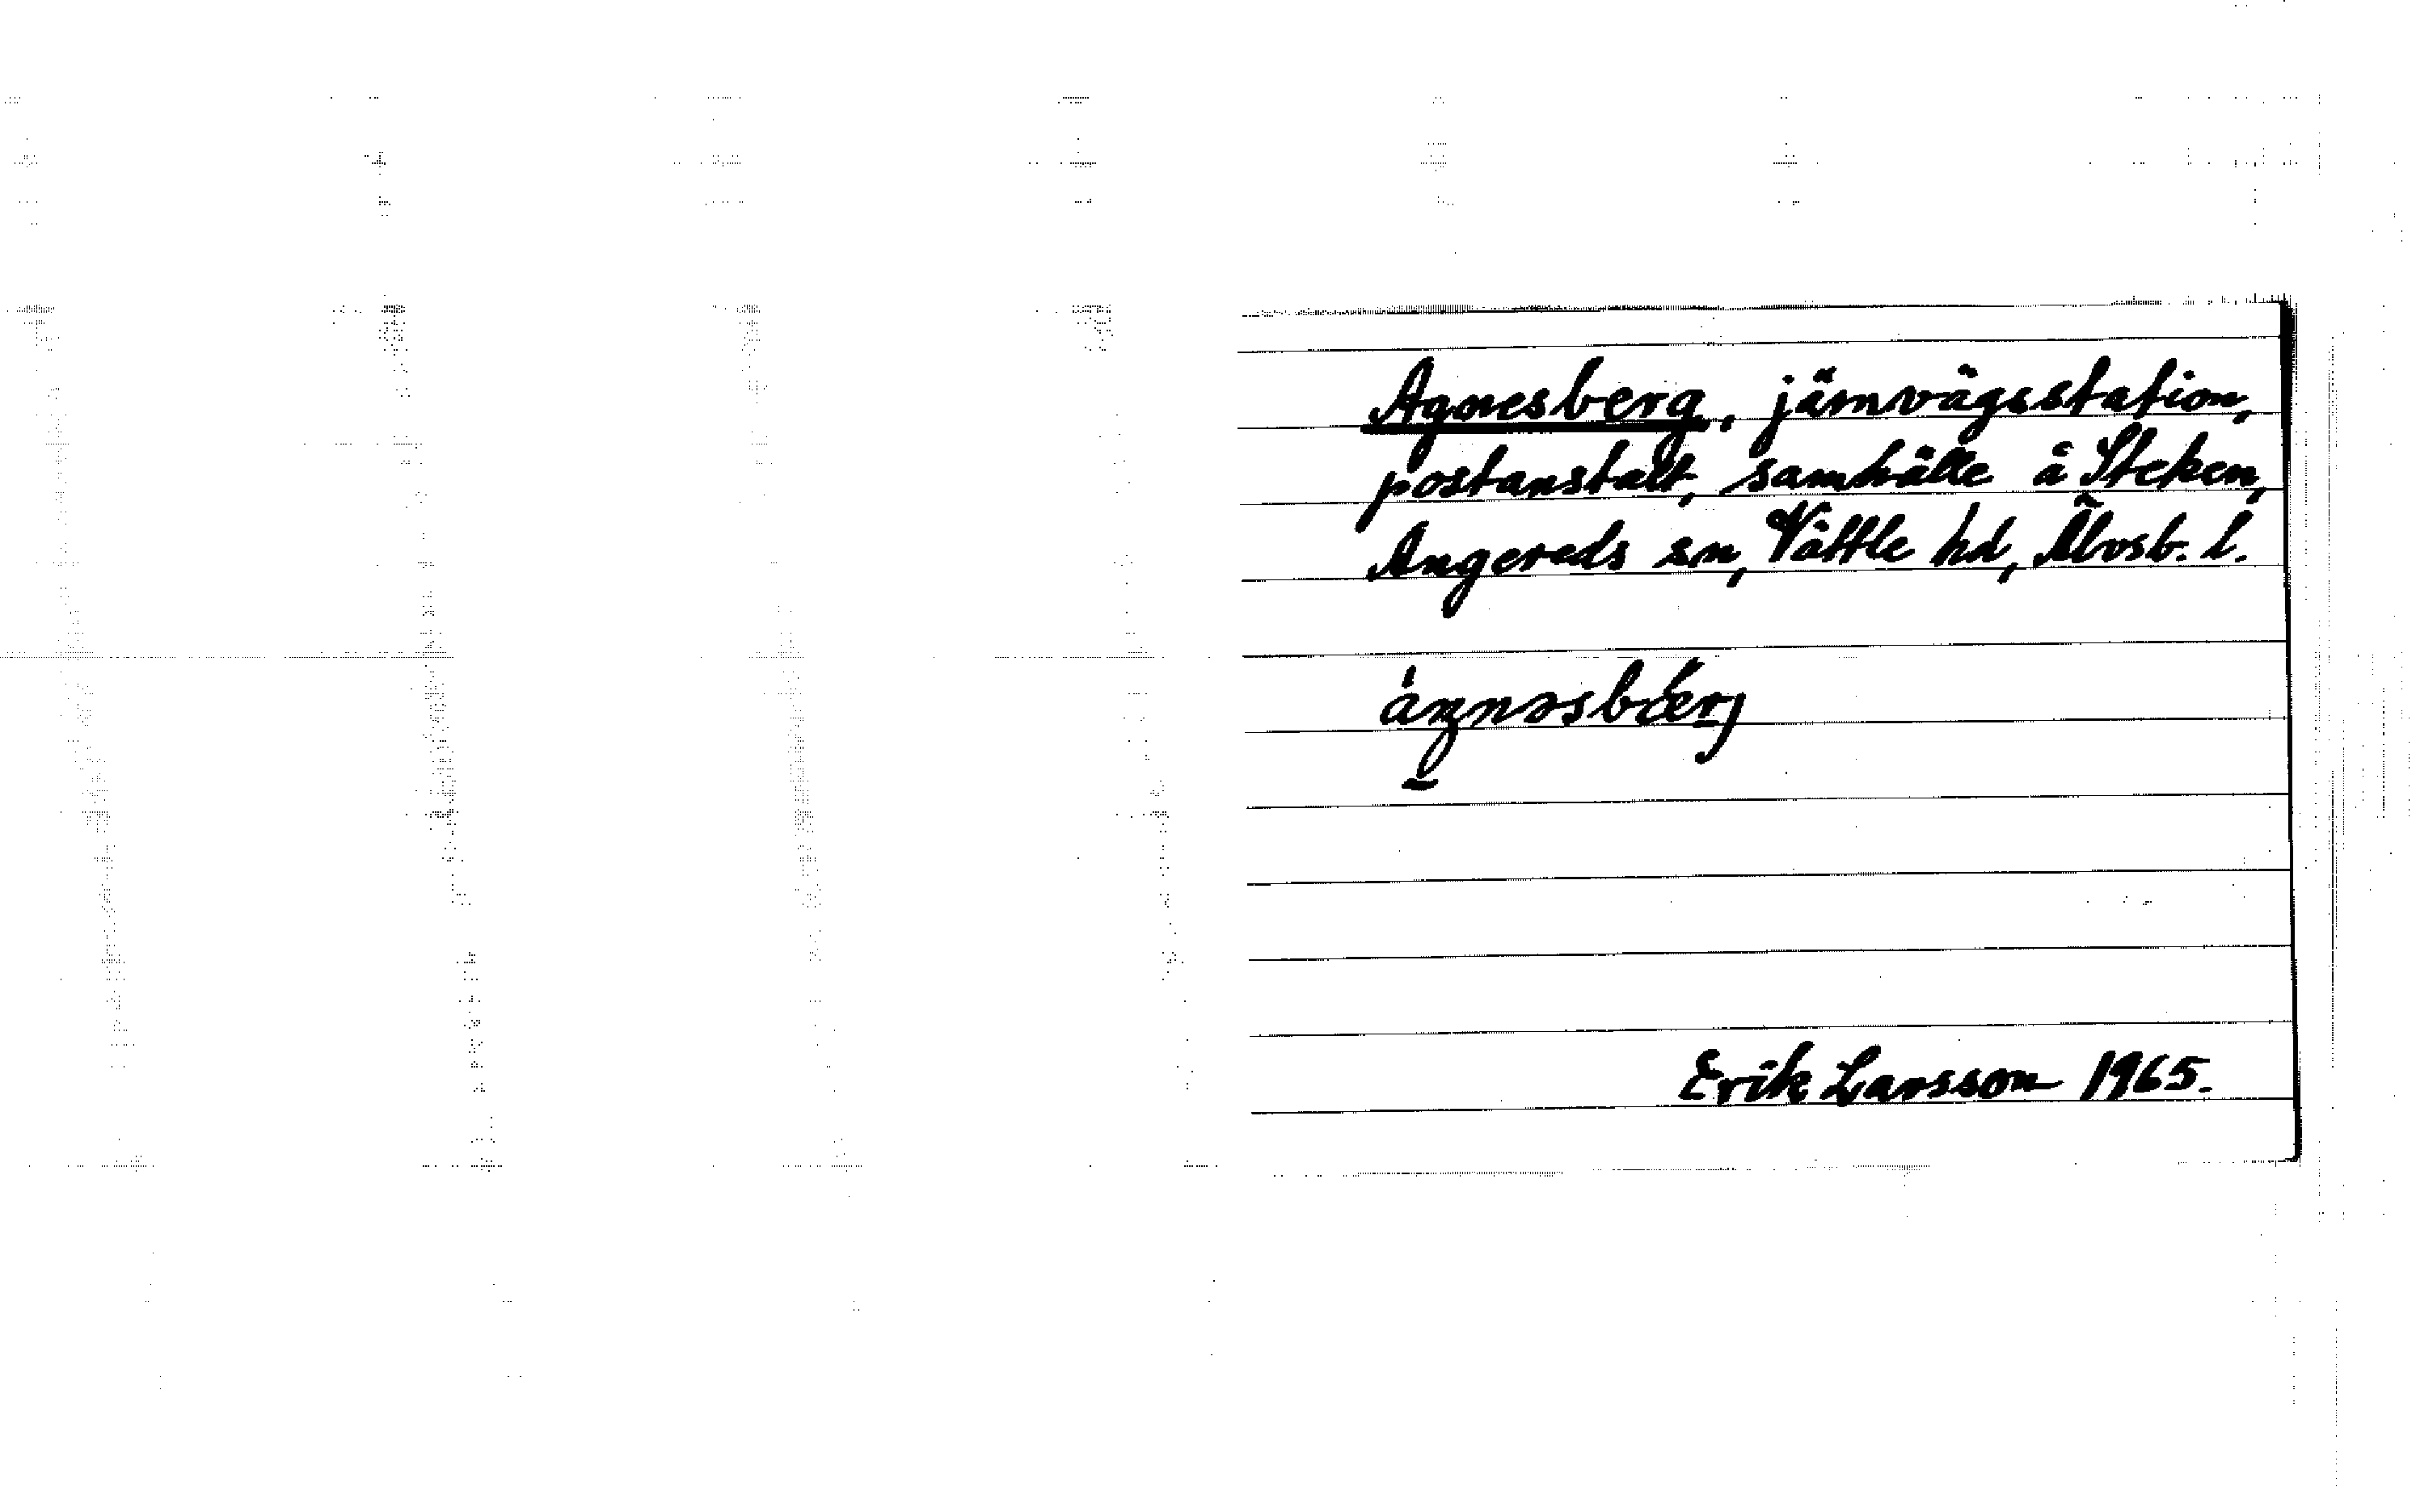 Agnesberg, järnvägsstation,
postanstalt, samhälle å Steken,
Angereds sn, Vättle hd, Älvsb. l.
Erik Larsson 1965.